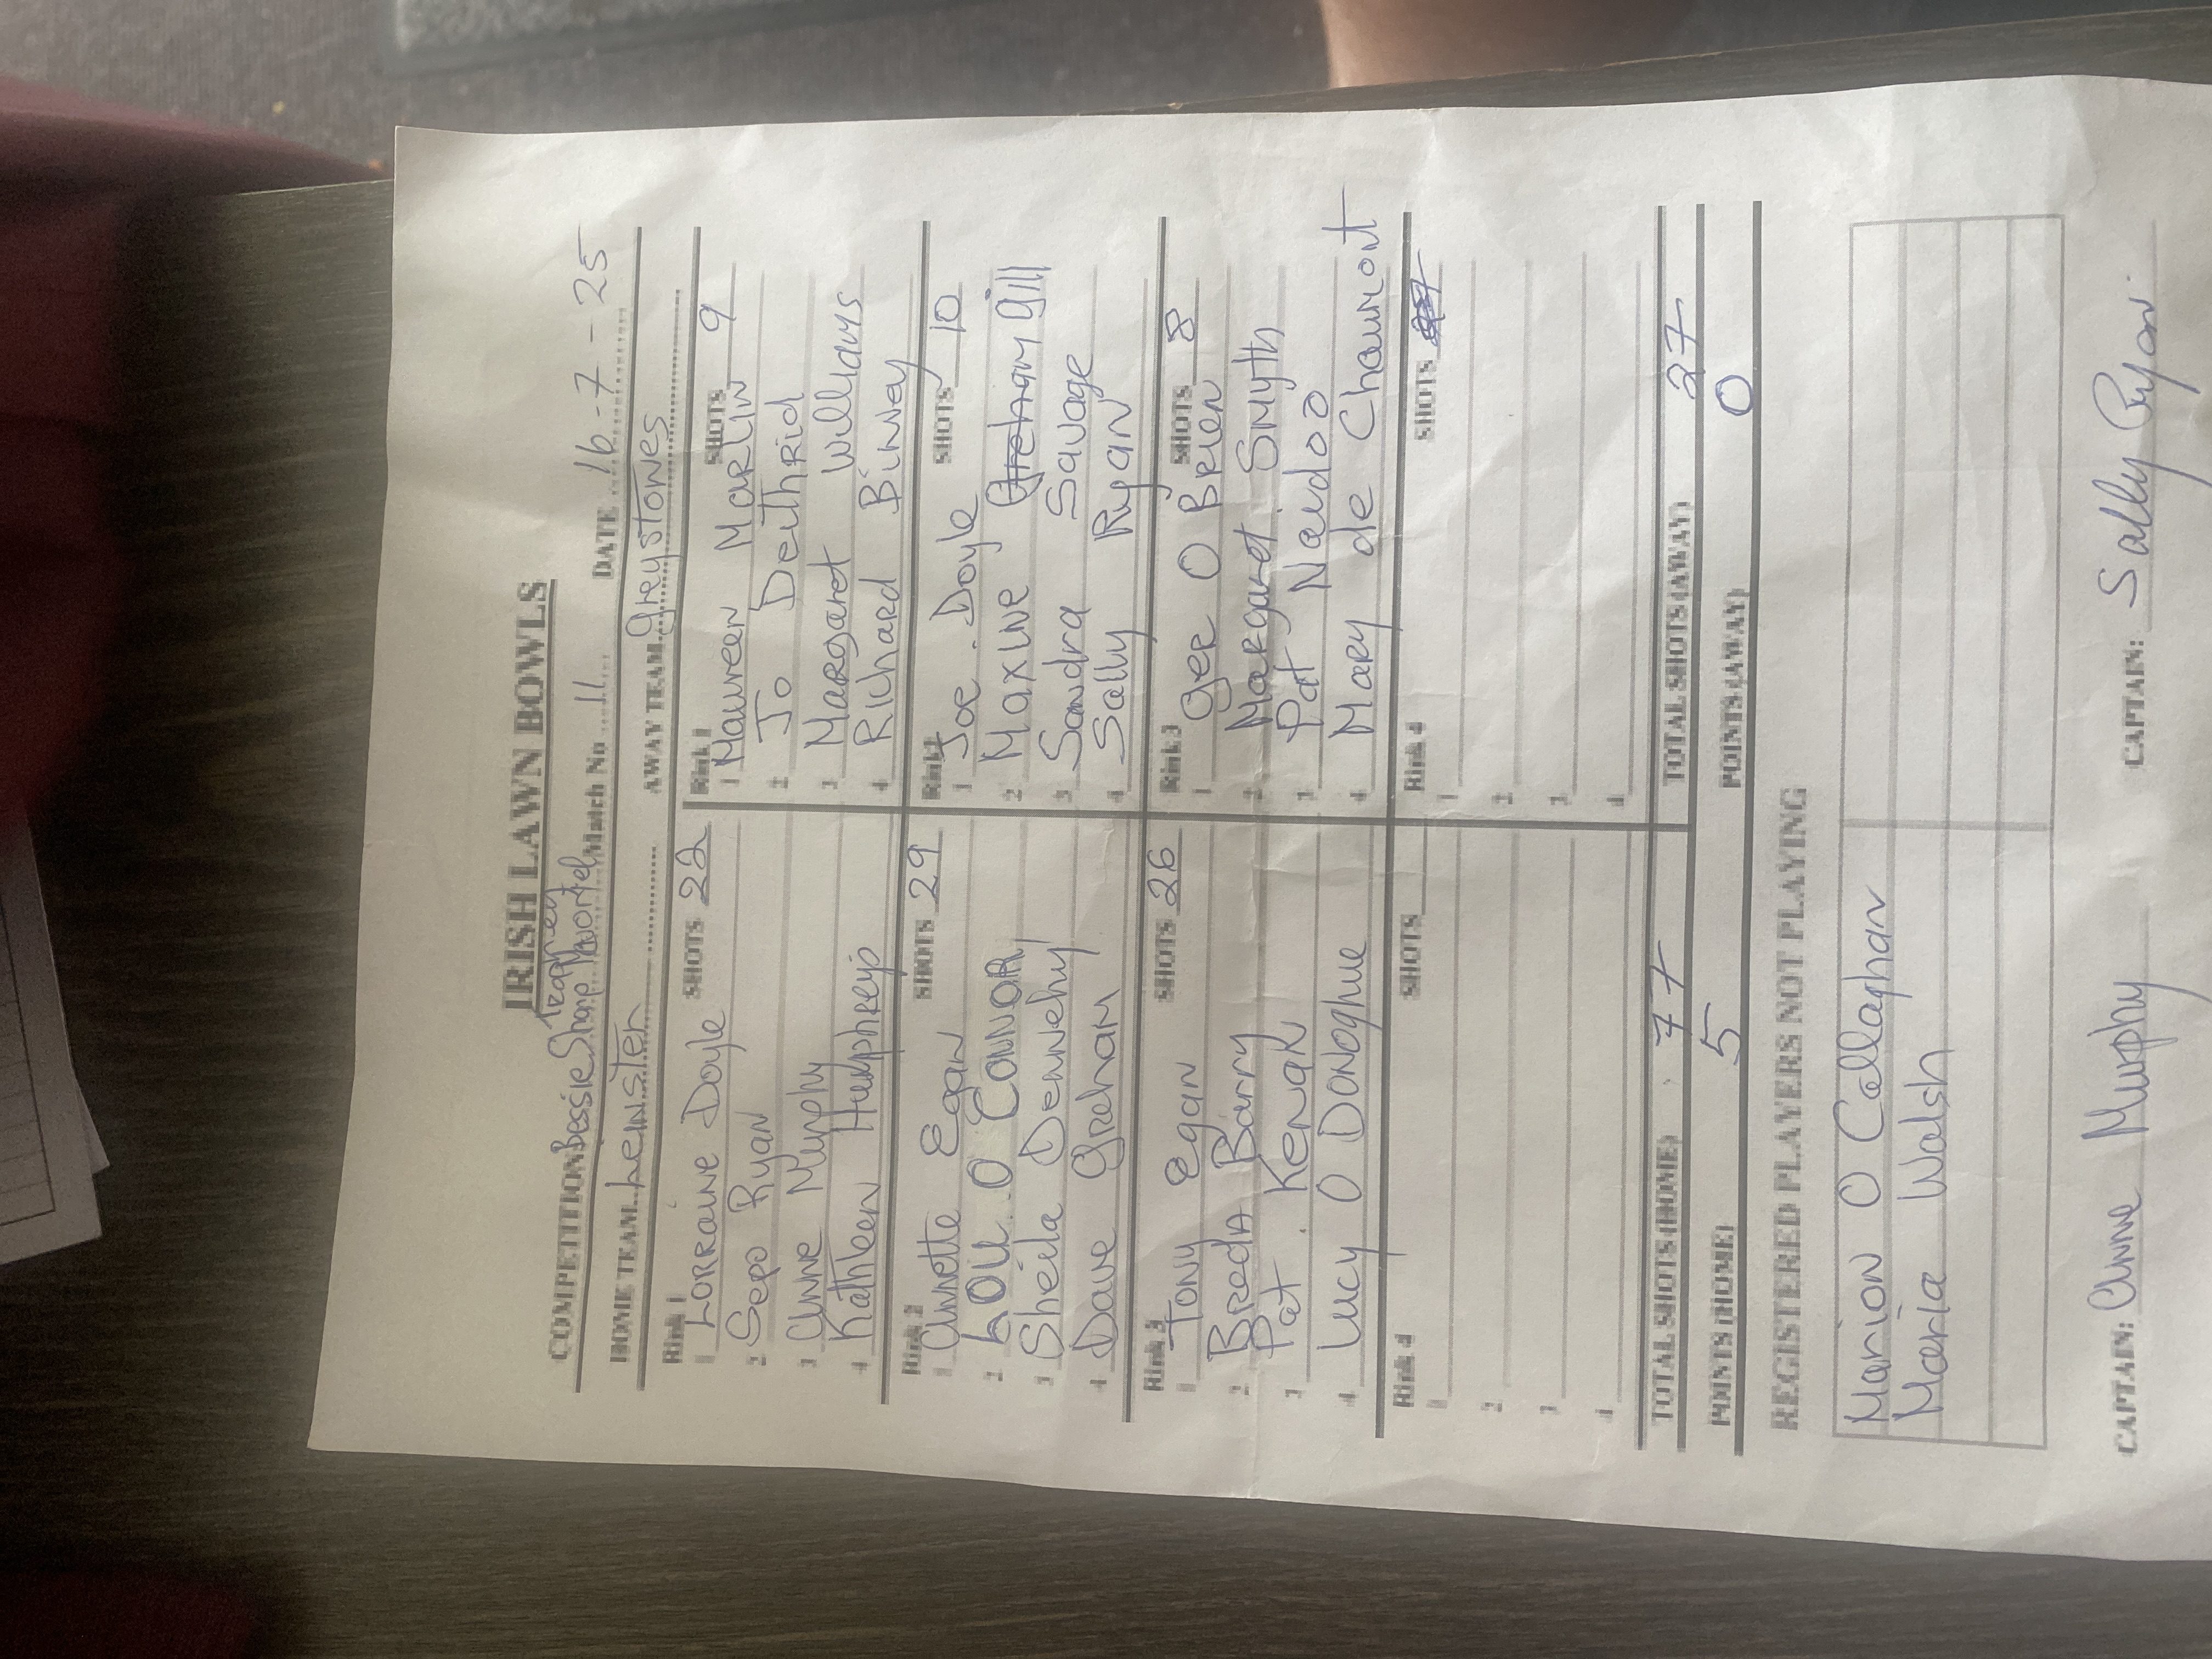 IRISH LAWN BOWLS
Trophey
COMPETITION Bessie Sharp Match No 11 DATE 16-7-25
HOME TEAM Leinster AWAY TEAM Greystones
Rink 1 SHOTS 22 Rink 1 SHOTS 9
1 Lorraine Doyle 1 Maureen Marlin
2 Sepo Ryan 2 Jo Deithrid
3 Anne Murphy 3 Margaret Williams
4 Kathleen Humphreys 4 Richard Binney
Rink 2 SHOTS 29 Rink 2 SHOTS 10
1 Annette Egan 1 Joe Doyle
2 Lou O Connor 2 Maxine Gill
3 Sheila Dennehy 3 Sandra Savage
4 Dave Graham 4 Sally Ryan
Rink 3 SHOTS 26 Rink 3 SHOTS 8
1 Tony Egan 1 Ger O Brien
2 Breda Barry 2 Margaret Smyth
3 Pat Kenan 3 Pat Naidoo
4 Lucy O Donoghue 4 Mary de Chaumont
Rink 4 SHOTS Rink 4 SHOTS
1 1
2 2
3 3
4 4
TOTAL SHOTS (HOME) 77 TOTAL SHOTS (AWAY) 27
POINTS (HOME) 5 POINTS (AWAY) 0
REGISTERED PLAYERS NOT PLAYING
Marion O Callaghan
Maria Walsh
CAPTAIN: Anne Murphy CAPTAIN: Sally Ryan